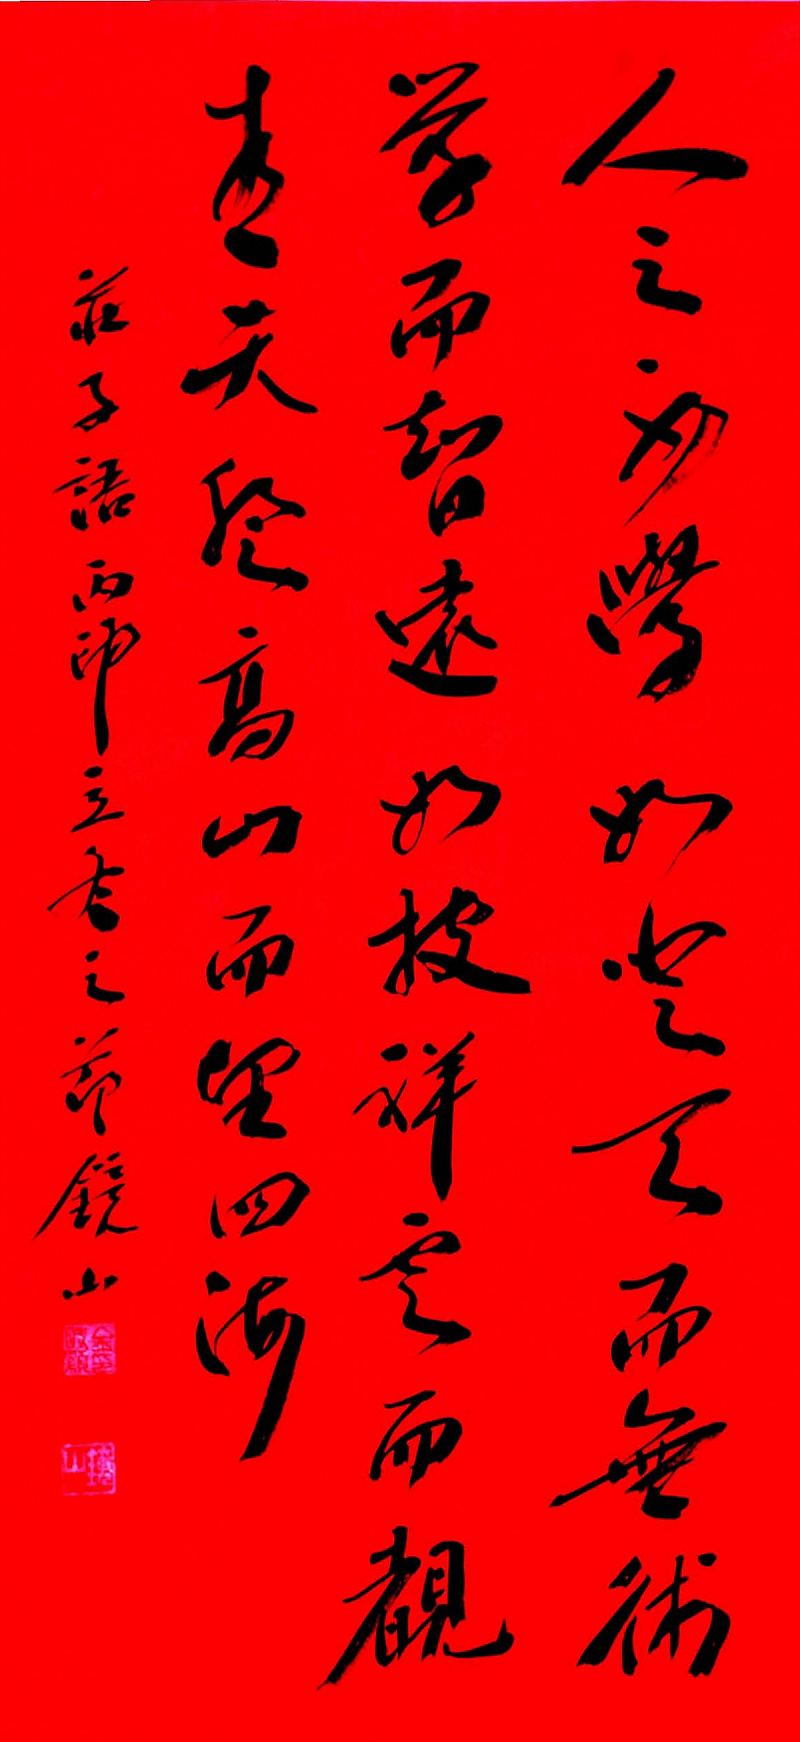 人之不學如登天而無術
學而智遠如披祥雲而觀
青天登高山而望四海
莊子語丙申立冬之節鏡山